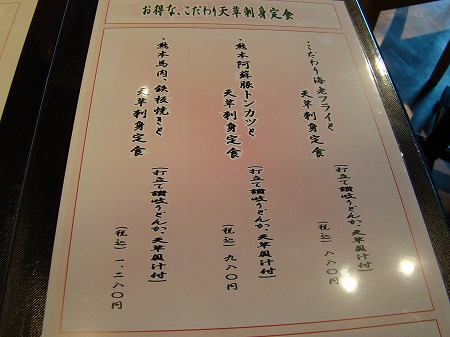 お得な、こだわり天草刺身定食
・こだわり海老フライと
天草刺身定食
(打立て讃岐うどんか、天草奥汁付)
(税込)八八〇円
・熊本阿蘇豚トンカツと
天草刺身定食
(打立て讃岐うどんか、天草奥汁付)
(税込)九八〇円
・熊本馬肉、鉄板焼きと
天草刺身定食
(打立て讃岐うどんか、天草奥汁付)
(税込)一、二八〇円